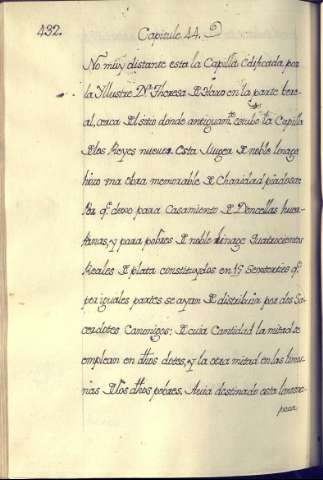 432. Capitulo 44.
No muy distante esta la Capilla edificada por
la Illustre Dª Theresa de Haro en la parte bore-
al, cerca del sitio donde antiguamte. estubo la Capilla
de los Reyes nuevos. Esta Muger de noble linage
hizo una obra memorable de Charidad piadosa:
Por qe. dexo para Casamiento de Doncellas huer-
fanas, y para pobres de noble linage quatrocientos
Reales de plata constituydos en 15 Sextercios qe.
por iguales partes se ayan de distribuir por dos Sa-
cerdotes Canonigos: de cuia Cantidad la mitad se
emplean en dhos dotes, y la otra mitad en las
de los dhos pobres. Avia destinado esta
para